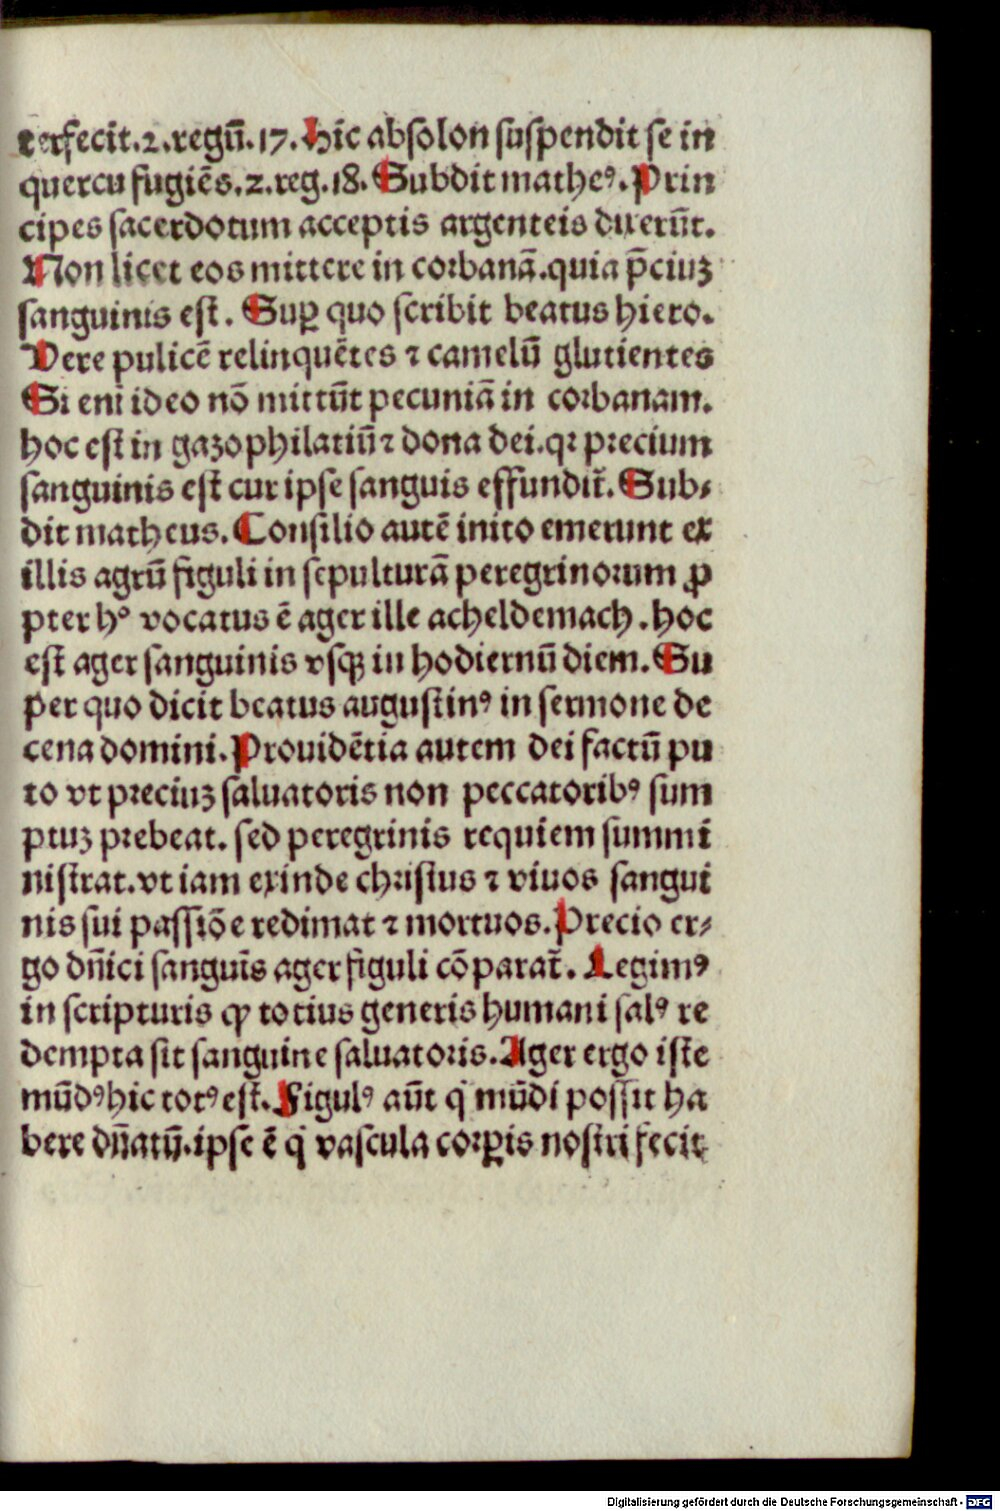 terfecit.2.regū.17.Hic absolon suspendit se in
quercu fugiēs.2.reg.18.Subdit matheꝰ.Prin
cipes sacerdotum acceptis argenteis dixerūt.
Non licet eos mittere in corbanā.quia p̄ciuʒ
sanguinis est. Suꝑ quo scribit beatus hiero.
Vere pulicē relinquētes ⁊ camelū glutientes
Si eni ideo nō mittūt pecuniā in corbanam.
hoc est in gazophilatiū ⁊ dona dei.qꝛ precium
sanguinis est cur ipse sanguis effundit̄. Sub⸗
dit matheus. Consilio autē inito emerunt ex
illis agrū figuli in sepulturā peregrinorum ꝓ
pter hͦ vocatus ē ager ille acheldemach.hoc
est ager sanguinis vsqꝫ in hodiernū diem. Su
per quo dicit beatus augustinꝰ in sermone de
cena domini. Prouidētia autem dei factū pu
to vt preciuʒ saluatoris non peccatoribꝰ sum
ptuʒ prebeat. sed peregrinis requiem summi
nistrat.vt iam exinde christus ⁊ viuos sangui
nis sui passiōe redimat ⁊ mortuos. Precio er⸗
go dn̄ici sanguīs ager figuli cōparat̄. Legimꝰ
in scripturis ꝙ totius generis humani salꝰ re
dempta sit sanguine saluatoris. Ager ergo iste
mūdꝰ hic totꝰ est. Figulꝰ aūt q̇ mūdi possit ha
bere dn̄atū.ipse ē q̇ vascula corꝑis nostri fecit
Digitalisierung gefördert durch die Deutsche Forschungsgemeinschaft - DFG